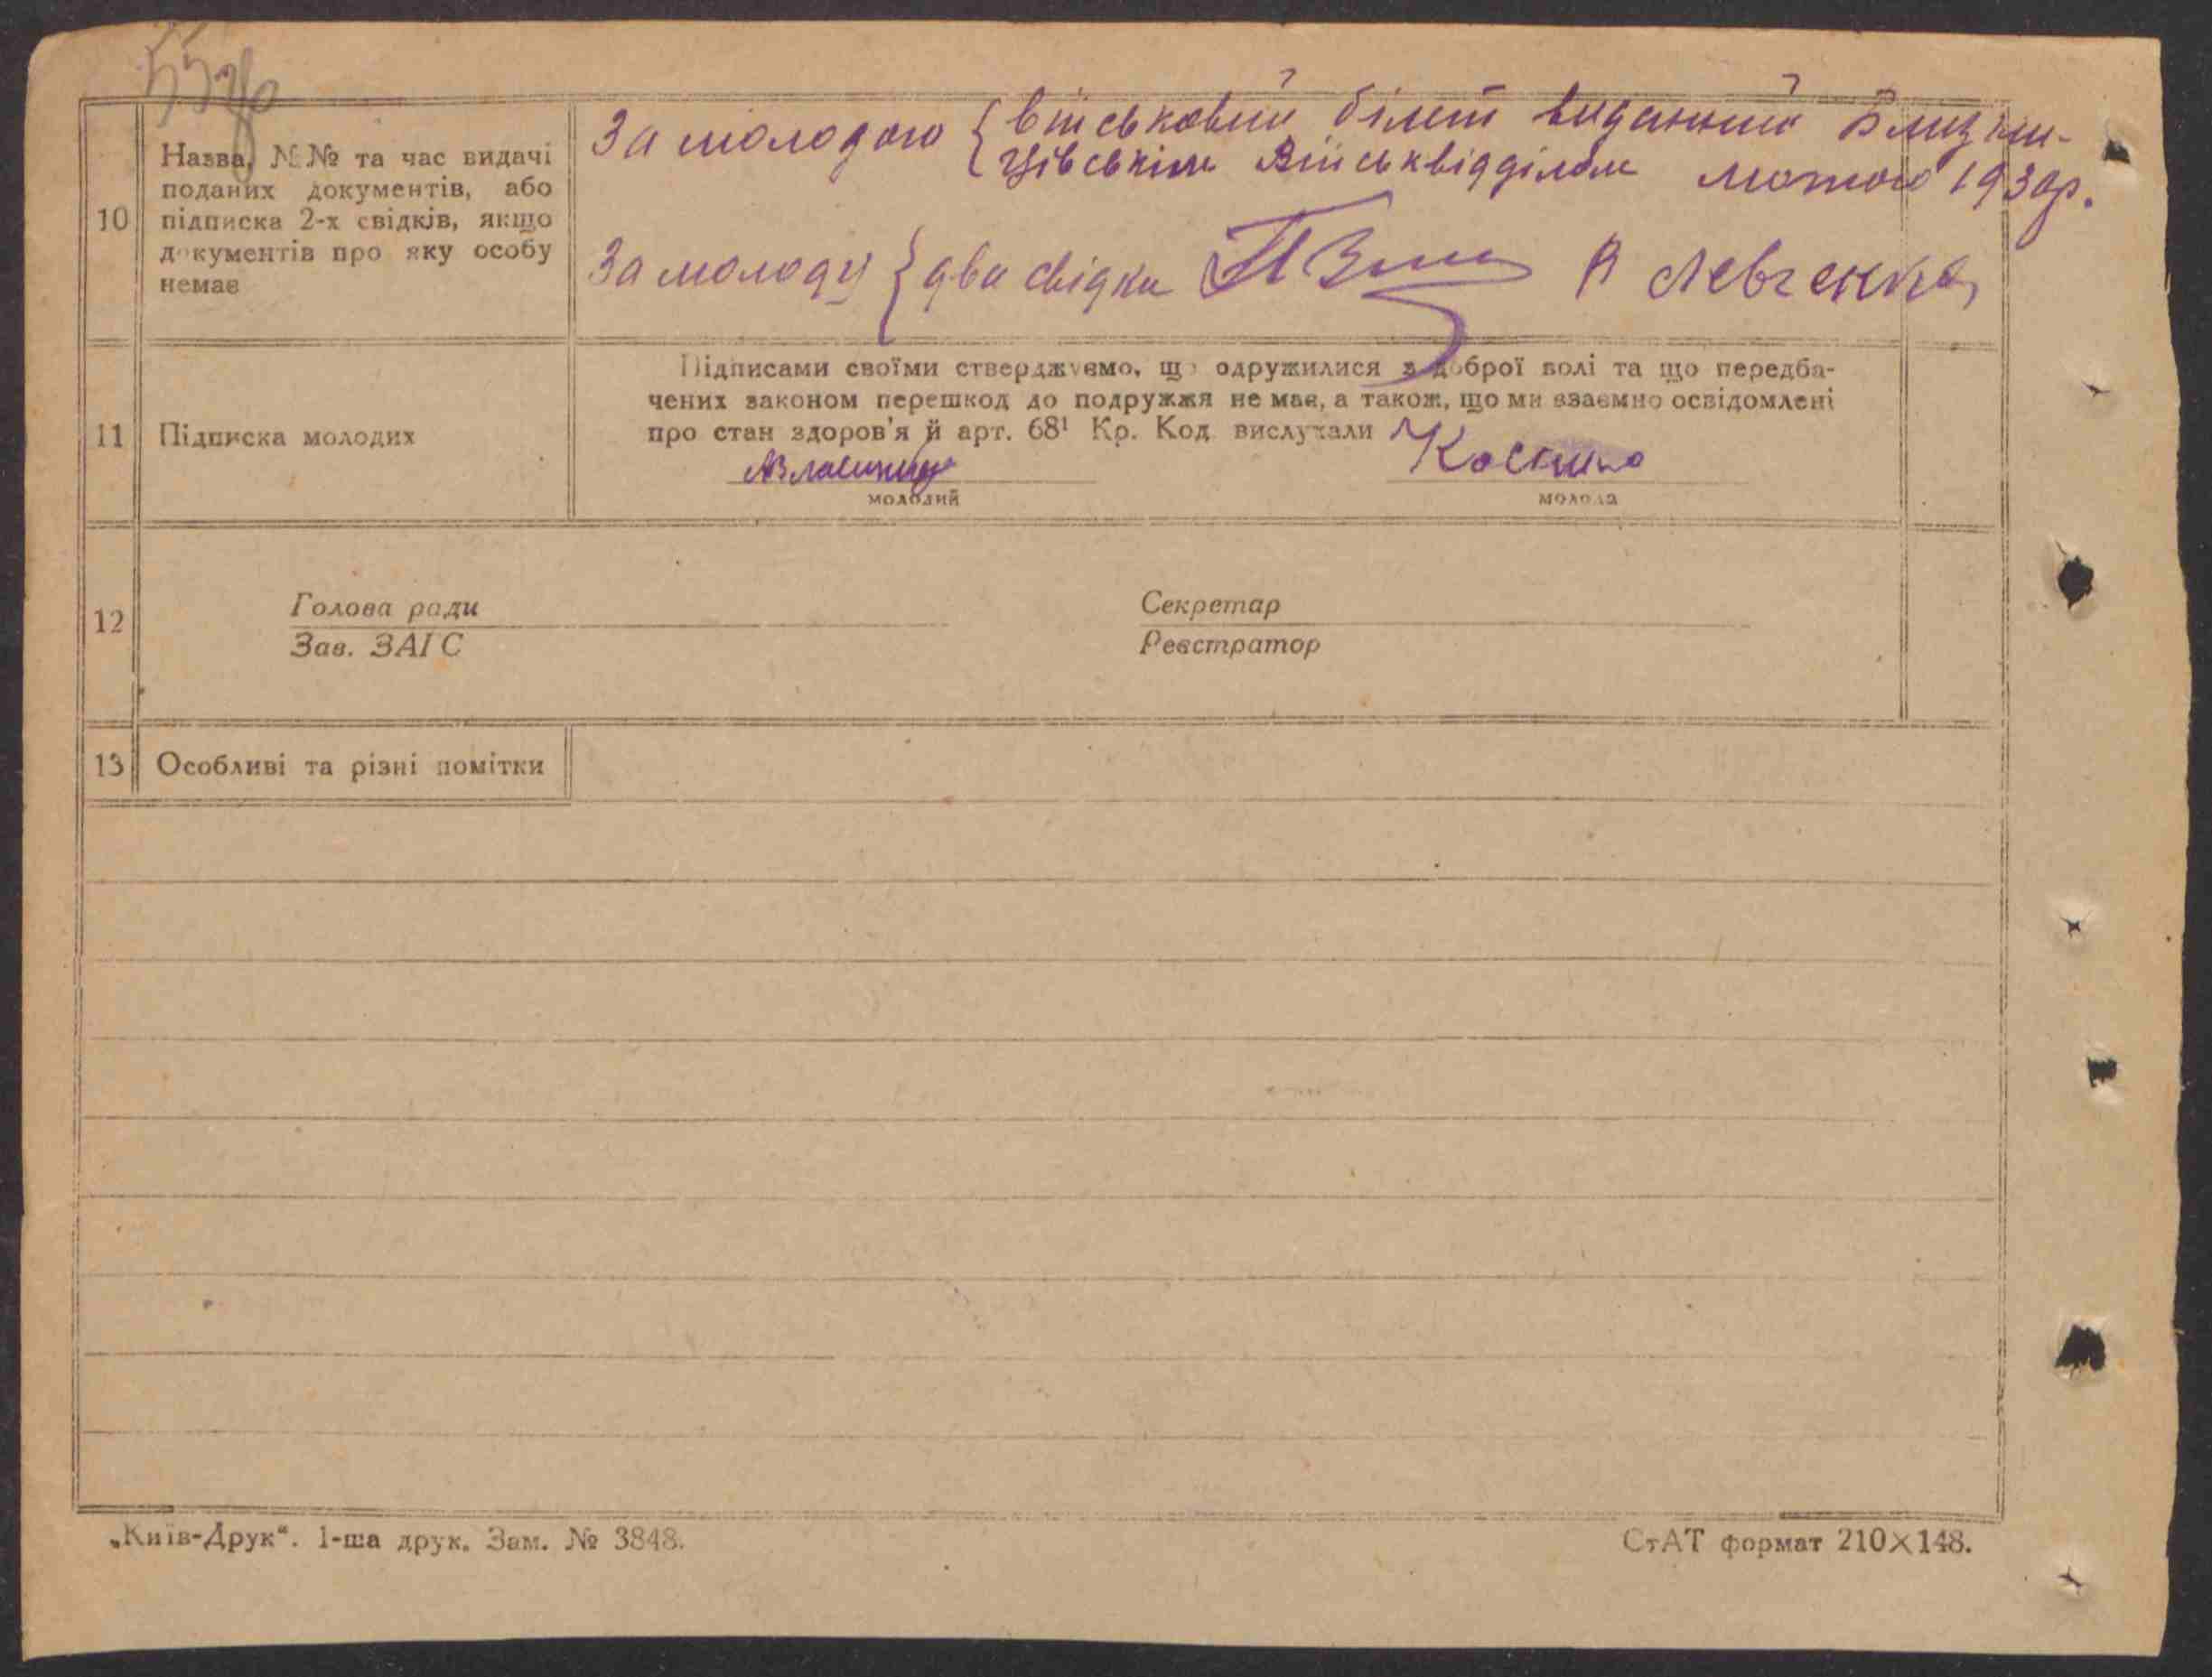 За молодого { військовий білет виданий Близни-
цівським Військвідділом лютого 1930р.
10
Назва, №№ та час видачі
поданих документів, або
підписка 2-х свідків, якщо
документів про яку особу
немає
За молоду { два свідки В Левченко
11
Підписка молодих
Підписами своїми стверджуємо, що одружилися з доброї волі та що передба-
чених законом перешкод до подружжя не має, а також, що ми взаємно освідомлені
про стан здоров'я й арт. 68¹ Кр. Код вислухали
молодий
молода
12
Голова ради
Зав. ЗАГС
Секретар
Реєстратор
13
Особливі та різні помітки
„Київ-Друк“. 1-ша друк. Зам. № 3848.
СтАТ формат 210×148.